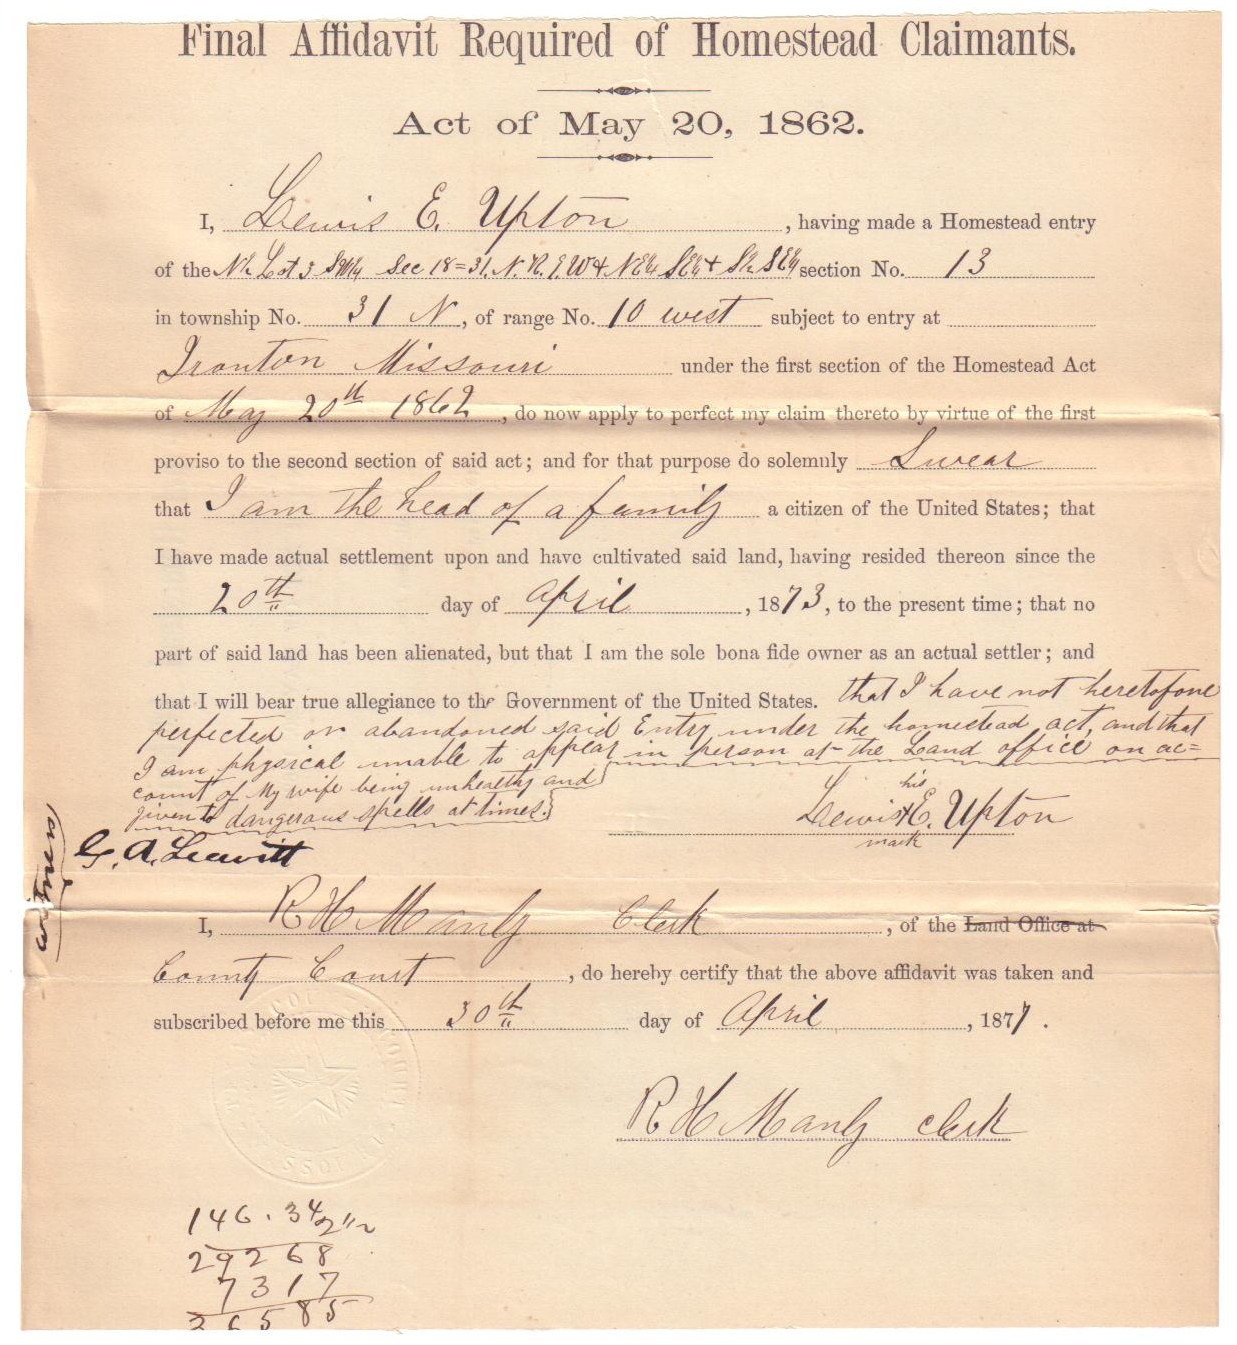 Final Affidavit Required of Homestead Claimants.
Act of May 20, 1862.
I, Lewis E. Upton, having made a Homestead entry
of the N½ Lot 3 SW¼ Sec 18=31. N. R. 9 W & NE¼ SE¼ + S½ SE¼ section No. 13
in township No. 31 N, of range No. 10 west subject to entry at
Ironton Missouri under the first section of the Homestead Act
of May 20th 1862, do now apply to perfect my claim thereto by virtue of the first
proviso to the second section of said act; and for that purpose do solemnly Swear
that I am the head of a family a citizen of the United States; that
I have made actual settlement upon and have cultivated said land, having resided thereon since the
20th day of April, 1873, to the present time; that no
part of said land has been alienated, but that I am the sole bona fide owner as an actual settler; and
that I will bear true allegiance to the Government of the United States. that I have not heretofore
perfected or abandoned said Entry under the homestead act, and that
I am physical unable to appear in person at the Land office on ac=
count of My wife being unhealthy and
given to dangerous spells at times.
his
Lewis + E. Upton
mark
witness
G. A. Leavitt
I, R H Manly Clerk, of the Land Office at
County Court, do hereby certify that the above affidavit was taken and
subscribed before me this 30th day of April, 1877.
R H Manly clerk
146.34
29268
7317
36585